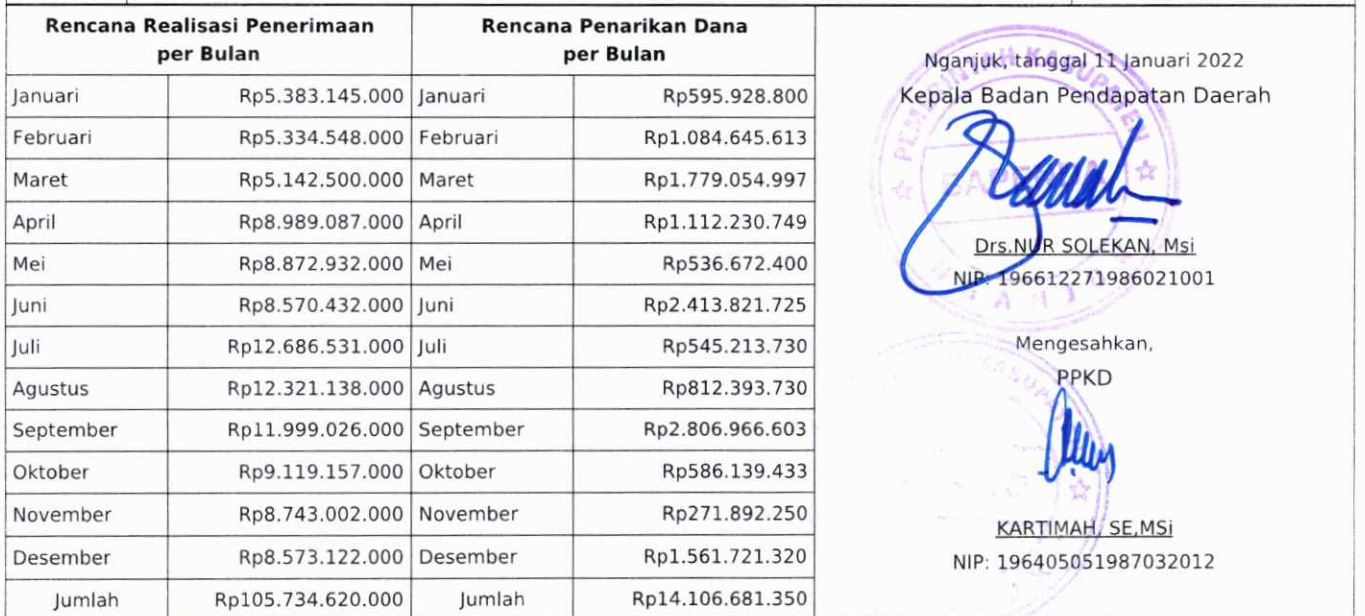 Rencana Realisasi Penerimaan
per Bulan
Rencana Penarikan Dana
per Bulan
Januari Rp5.383.145.000 Januari Rp595.928.800
Februari Rp5.334.548.000 Februari Rp1.084.645.613
Maret Rp5.142.500.000 Maret Rp1.779.054.997
April Rp8.989.087.000 April Rp1.112.230.749
Mei Rp8.872.932.000 Mei Rp536.672.400
Juni Rp8.570.432.000 Juni Rp2.413.821.725
Juli Rp12.686.531.000 Juli Rp545.213.730
Agustus Rp12.321.138.000 Agustus Rp812.393.730
September Rp11.999.026.000 September Rp2.806.966.603
Oktober Rp9.119.157.000 Oktober Rp586.139.433
November Rp8.743.002.000 November Rp271.892.250
Desember Rp8.573.122.000 Desember Rp1.561.721.320
Jumlah Rp105.734.620.000 Jumlah Rp14.106.681.350
Nganjuk, tanggal 11 Januari 2022
Kepala Badan Pendapatan Daerah
PEMERINTAH KABUPATEN
Drs.NUR SOLEKAN, Msi
NIP: 196612271986021001
Mengesahkan,
PPKD
KARTIMAH, SE,MSi
NIP: 196405051987032012